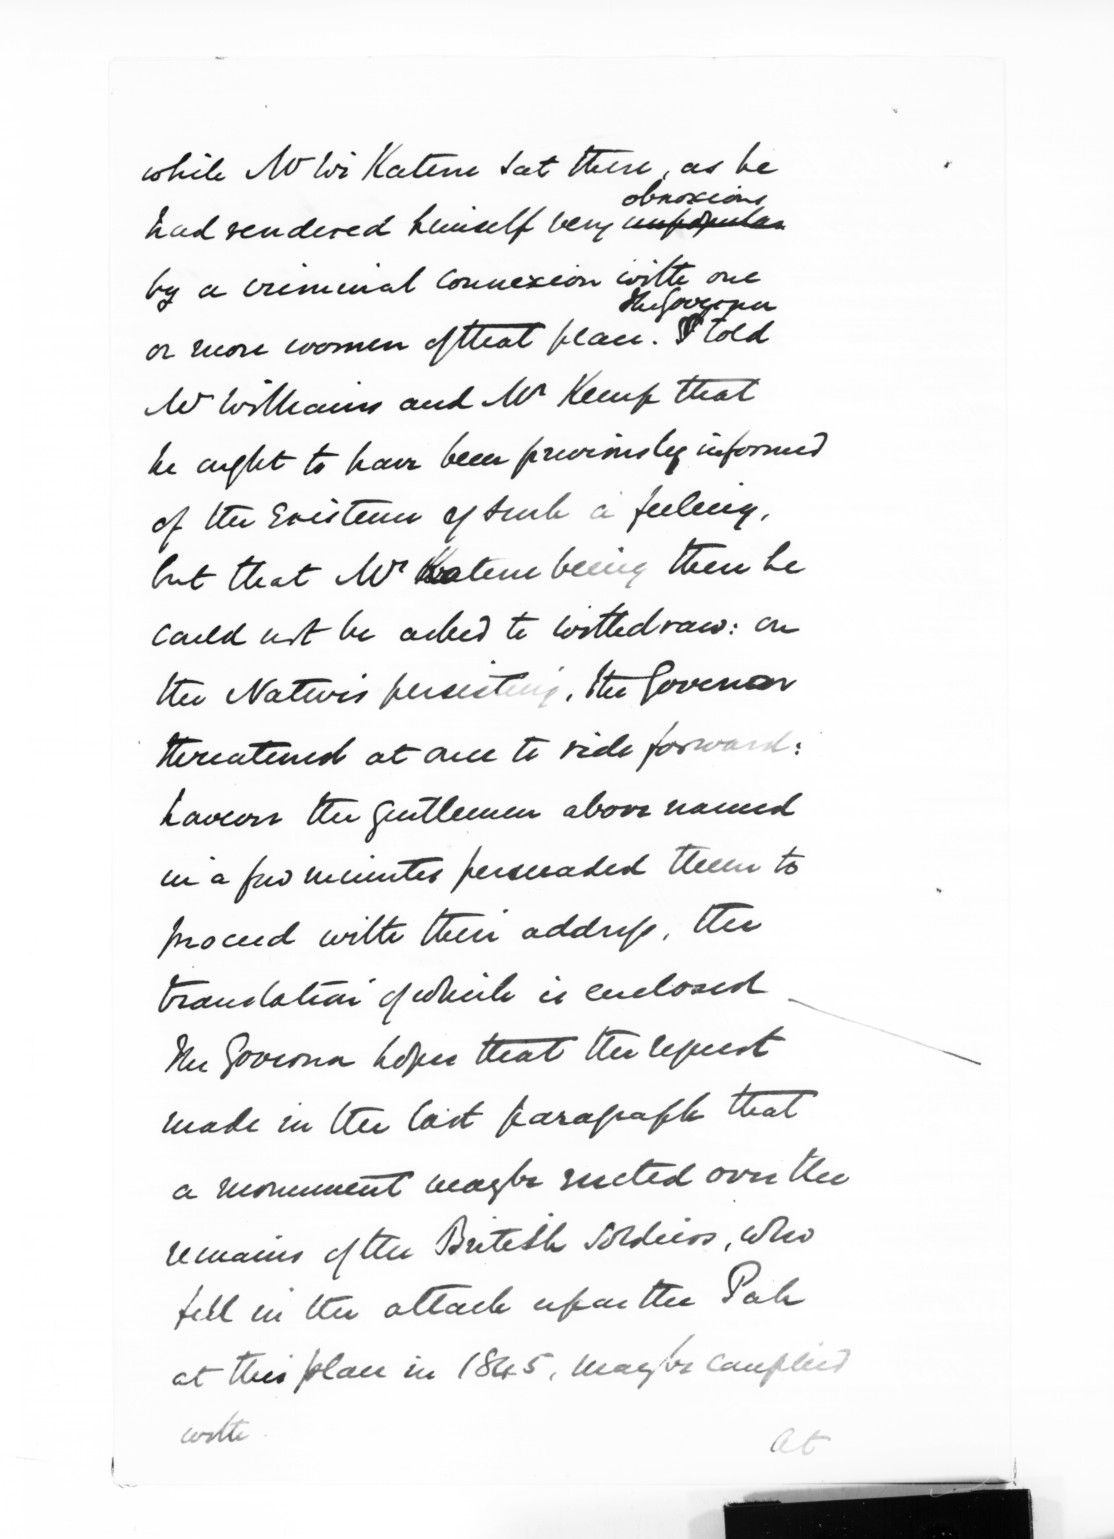 while Mr Wi Katene sat there, as he
had rendered himself very unpopular obnoxious
by a criminal connexion with one
or more women of that place. I The Governor told
Mr Williams and Mr Kemp that
he ought to have been previously informed
of the Existence of such a feeling,
but that Mr Katene being there he
could not be asked to withdraw: on
the Natives persisting, the Governor
threatened at once to ride forward:
however the gentlemen above named
in a few minutes persuaded them to
proceed with their address, the
translation of which is enclosed
The Governor hopes that the request
made in the last paragraph that
a monument may be erected over the
remains of the British Soldiers, who
fell in the attack upon the Pah
at this place in 1845, may be complied
with
At